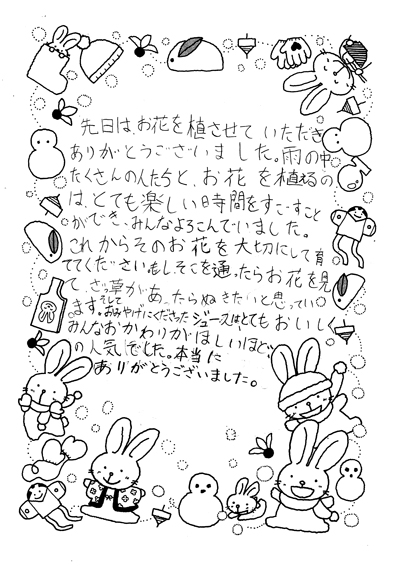 先日は、お花を植させていただき
ありがとうございました。雨の中
たくさんの人たちと、お花を植えるの
は、とても楽しい時間をすごすこと
ができ、みんなよろこんでいました。
これからそのお花を大切にして育
ててください。もしそこを通ったらお花を見
て、ざっ草があったらぬきたいと思ってい
ます。そしておみやげにくださったジュースはとてもおいしく
みんなおかわりがほしいほど
の人気でした。本当に
ありがとうございました。